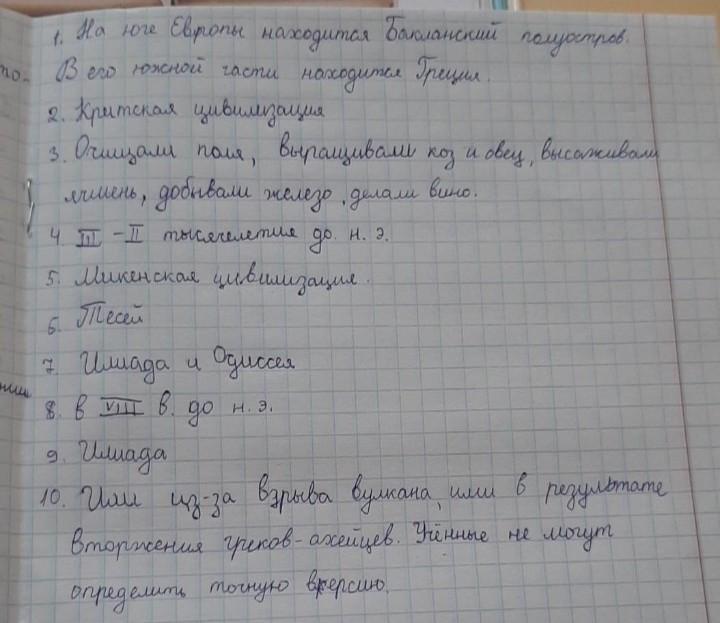 1. На юге Европы находится Бакланский полуостров.
то-
В его южной части находится Греция.
2. Критская цивилизация
3. Очищали поля, выращивали коз и овец, высаживали
ячмень, добывали железо, делали вино.
4 III – II тысячелетие до н. э.
5. Микенская цивилизация.
6. Тесей
7. Илиада и Одиссея
8. в VIII в. до н. э.
9. Илиада
10. Или из-за взрыва вулкана, или в результате
вторжения греков-ахейцев. Учённые не могут
определить точную версию.